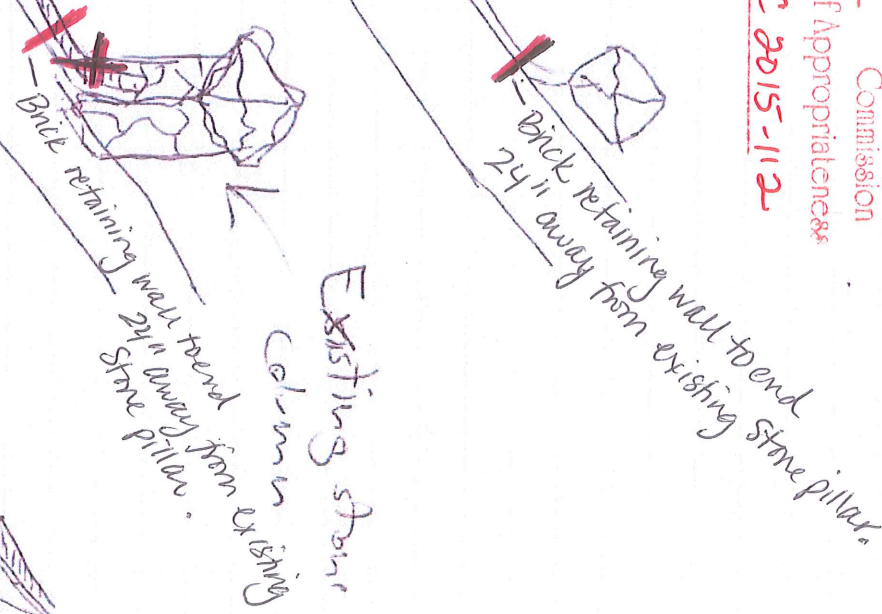 Commission
f Appropriateness
2015-112
- Brick retaining wall to end
24" away from existing stone pillar.
Existing stone
Column
- Brick retaining wall to end
24" away from existing
stone pillar.